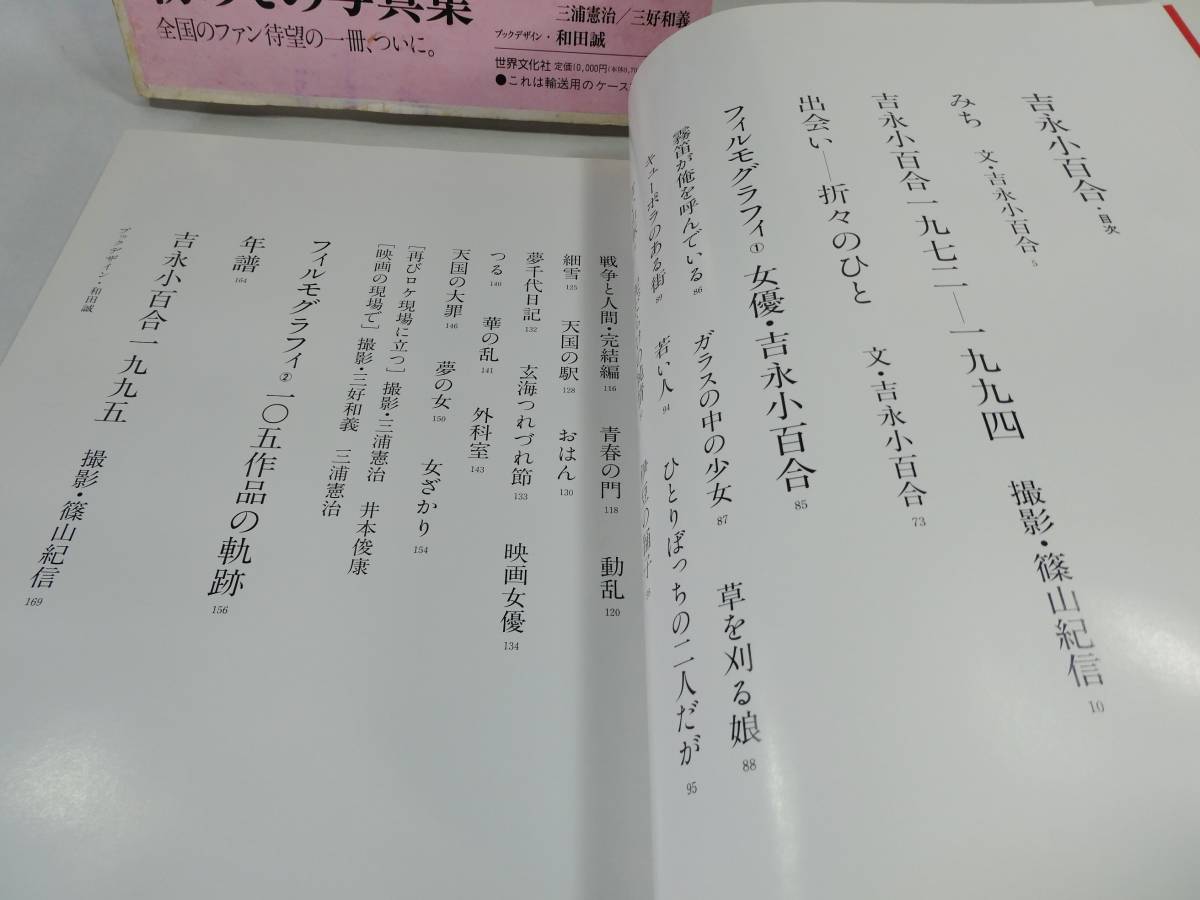 全国のファン待望の一冊、ついに。
三浦憲治/三好和義
ブックデザイン・和田誠
世界文化社 定価10,000円
●これは輸送用のケース
吉永小百合・目次
みち 文・吉永小百合 5
吉永小百合一九七二―一九九四 撮影・篠山紀信 10
出会い―折々のひと 文・吉永小百合 73
フィルモグラフィ① 女優・吉永小百合 85
霧笛が俺を呼んでいる 86 ガラスの中の少女 87 草を刈る娘 88
キューポラのある街 89 若い人 94 ひとりぼっちの二人だが 95
戦争と人間・完結編 116 青春の門 118 動乱 120
細雪 125 天国の駅 128 おはん 130
夢千代日記 132 玄海つれづれ節 133 映画女優 134
つる 140 華の乱 141 外科室 143
天国の大罪 146 夢の女 150 女ざかり 154
[再びロケ現場に立つ] 撮影・三浦憲治 井本俊康
[映画の現場で] 撮影・三好和義 三浦憲治
フィルモグラフィ② 一〇五作品の軌跡 156
年譜 164
吉永小百合一九九五 撮影・篠山紀信 169
ブックデザイン・和田誠